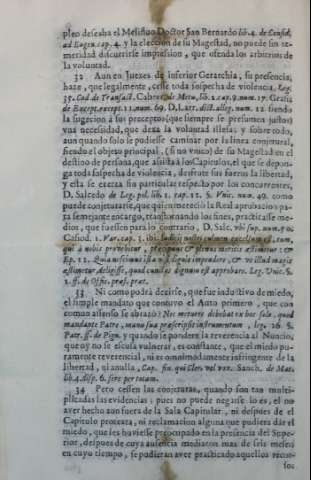 pleo deseaba el Melifluo Doctor San Bernardo lib. 4. de Consid.
ad Eugen. cap. 4. y la eleccion de su Magestad, no puede sin te-
meridad discurrirse impression, que ofenda los arbitrios de
la voluntad.
32 Aun en Juezes de inferior Gerarchia, su presencia,
haze, que legalmente, cesse toda sospecha de violencia. Leg.
35. Cod. de Transact. Cabrer. de Metu, lib. 2. cap. 9. num. 17. Gratia.
de Except. except. 11. num. 69. D. Lar. dict. alleg. num. 12 siendo
la sugecion à sus preceptos (que siempre se presumen justos)
vna necessidad, que dexa la voluntad illesa; y sobre todo,
aun quando solo se pudiesse caminar por la linea conjetural,
siendo el objeto principal, (si no vnico) de su Magestad en el
destino de persona, que assista à los Capitulos, el que se depon-
ga toda sospecha de violencia, desfrute sus fueros la libertad,
y esta se exerza sin particular respecto por los concurrentes,
D. Salcedo de Leg. pol. lib. 1. cap. 12. §. Vnic. num. 49. como
puede conjeturarse, que quien mereciò la Real aprobacion pa-
ra semejante encargo, transtornando los fines, practicasse me-
dios, que fuessen para lo contrario, D. Salc. vbi sup. num. 50
Casiod. 1. Var. cap. 1. ibi: Iudicij nostri culmen excelsum est, cum
qui à nobis provehitur, præcipuus & plenus meritis æstimetur: &
Ep. 12. Quia nescimus ista nisi dignis impendere, & vt illud magis
æstimetur delegisse, quod cunctis dignum est approbare. Leg. Vnic. §.
1. ff. de Offic. præf. præt.
33 Ni como podrà dezirse, que fue inductivo de miedo,
el simple mandato que contuvo el Auto primero, que con
comun assenso se abrazò? Nec metuere debebat ex hoc solo, quod
mandante Patre, manu sua præscripsit instrumentum, leg. 26. §.
Patr. ff. de Pign. y quando se pondere la reverencia al Nuncio,
que oy no se escusa vulnerar, es constante, que el miedo pu-
ramente reverencial, ni es omnimodamente infringente de la
libertad, ni anulla, Cap. fin. qui Cler. vel vov. Sanch. de Mat.
lib. 4. disp. 6. fere per totam.
34 Pero cessen las conjeturas, quando son tan multi-
plicadas las evidencias: pues no puede negarse lo es, el no
aver hecho aun fuera de la Sala Capitular, ni despues de el
Capitulo protexta, ni reclamacion alguna que pudiera dàr el
miedo, que les huviesse preocupado en la presencia del Supe-
rior, despues de cuya ausencia mediaron mas de seis meses
en cuyo tiempo, se pudieran aver practicado aquellos recur-
sos